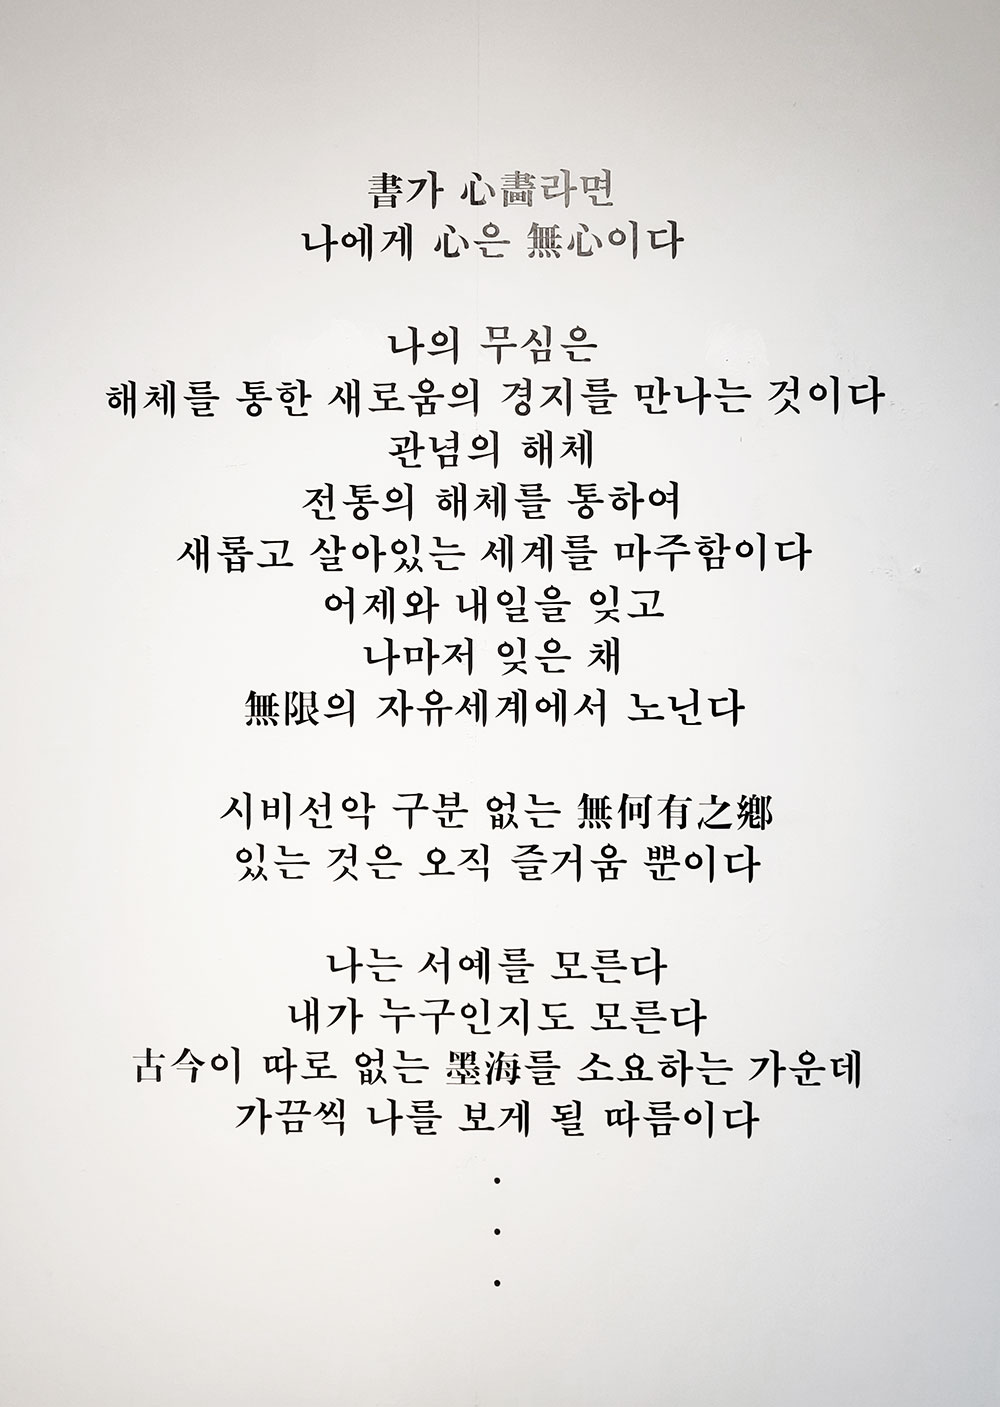 書가 心畵라면
나에게 心은 無心이다
나의 무심은
해체를 통한 새로움의 경지를 만나는 것이다
관념의 해체
전통의 해체를 통하여
새롭고 살아있는 세계를 마주함이다
어제와 내일을 잊고
나마저 잊은 채
無限의 자유세계에서 노닌다
시비선악 구분 없는 無何有之鄕
있는 것은 오직 즐거움 뿐이다
나는 서예를 모른다
내가 누구인지도 모른다
古今이 따로 없는 墨海를 소요하는 가운데
가끔씩 나를 보게 될 따름이다
·
·
·